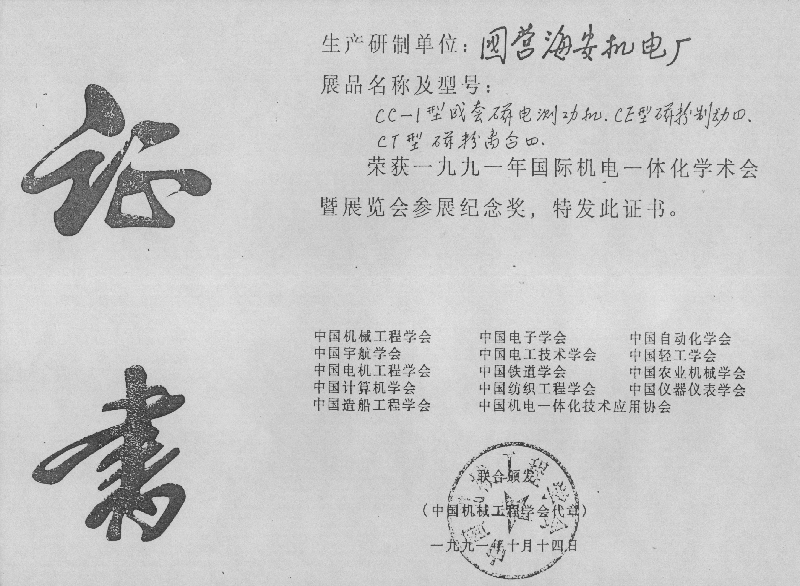 证
书
生产研制单位：国营海安机电厂
展品名称及型号：
CC-1型成套磁电测功机、CE型磁粉制动四、
CT型磁粉离合四、
荣获一九九一年国际机电一体化学术会
暨展览会参展纪念奖，特发此证书。
中国机械工程学会 中国电子学会 中国自动化学会
中国宇航学会 中国电工技术学会 中国轻工学会
中国电机工程学会 中国铁道学会 中国农业机械学会
中国计算机学会 中国纺织工程学会 中国仪器仪表学会
中国造船工程学会 中国机电一体化技术应用协会
联合颁发
（中国机械工程学会代章）
一九九一年十月十四日